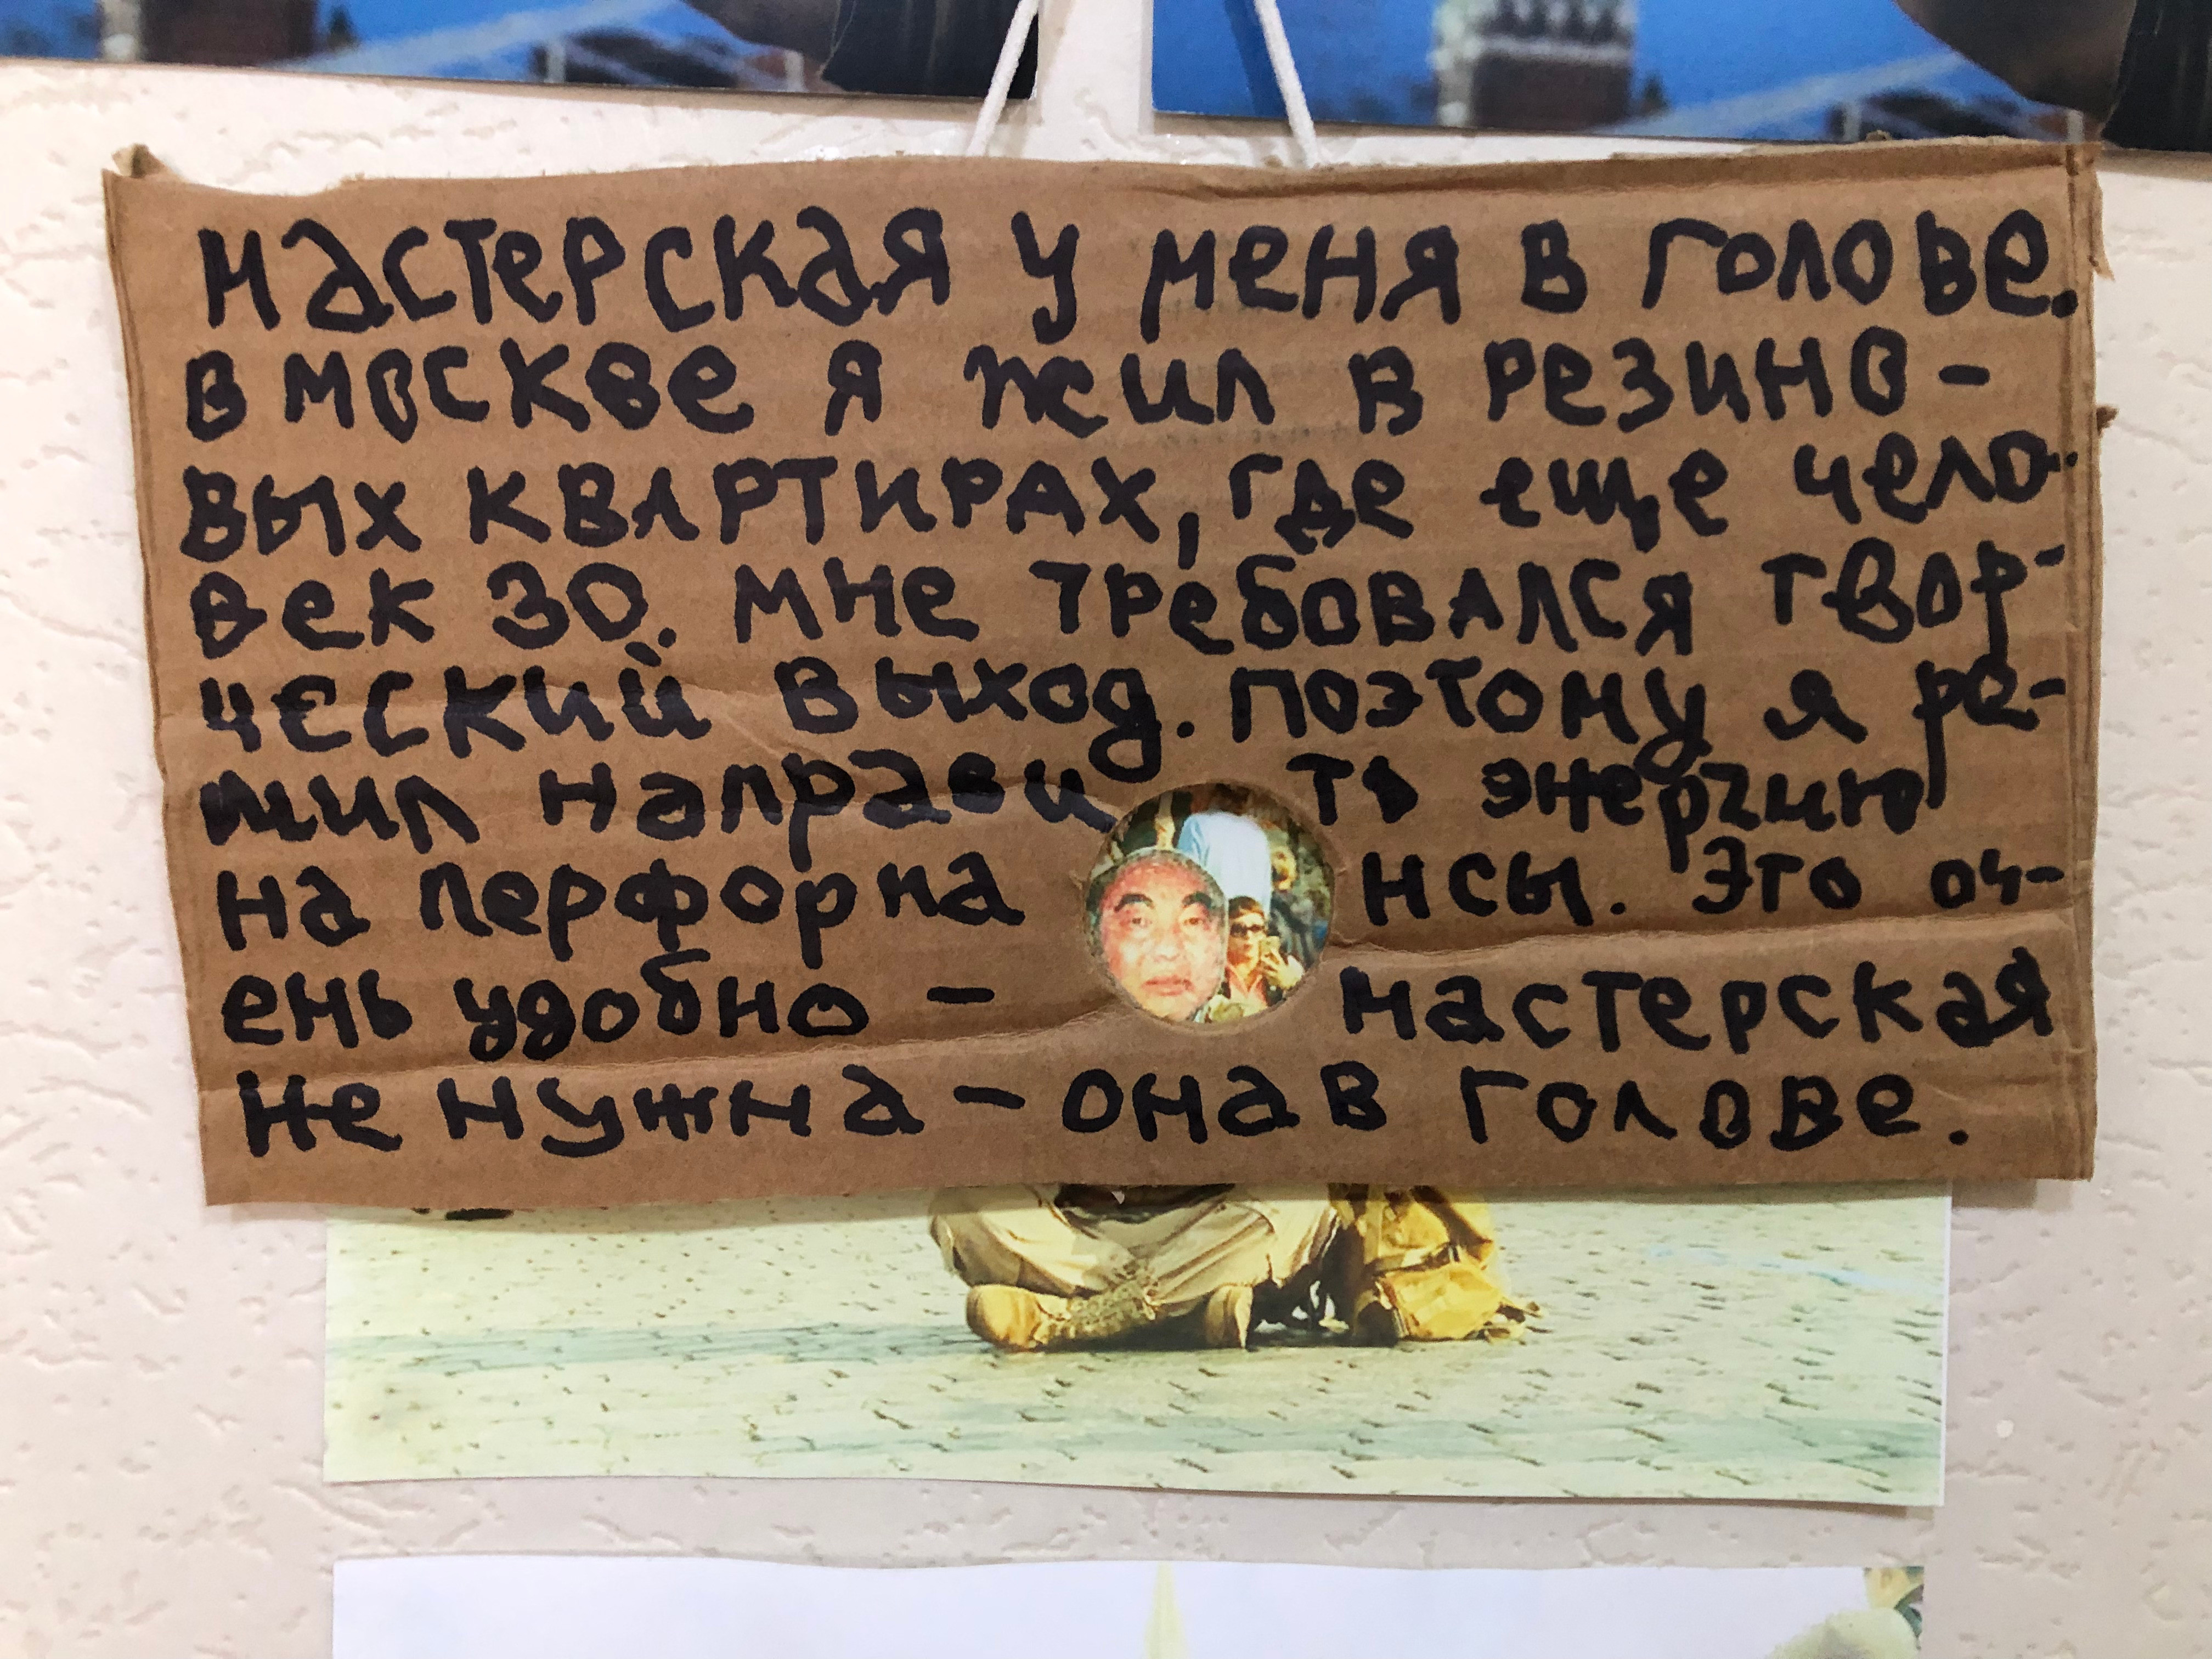 мастерская у меня в голове.
в москве я жил в резино-
вых квартирах, где еще чело-
век 30. мне требовался твор-
ческий выход. поэтому я ре-
шил направить энергию
на перформансы. это оч-
ень удобно - мастерская
не нужна - она в голове.